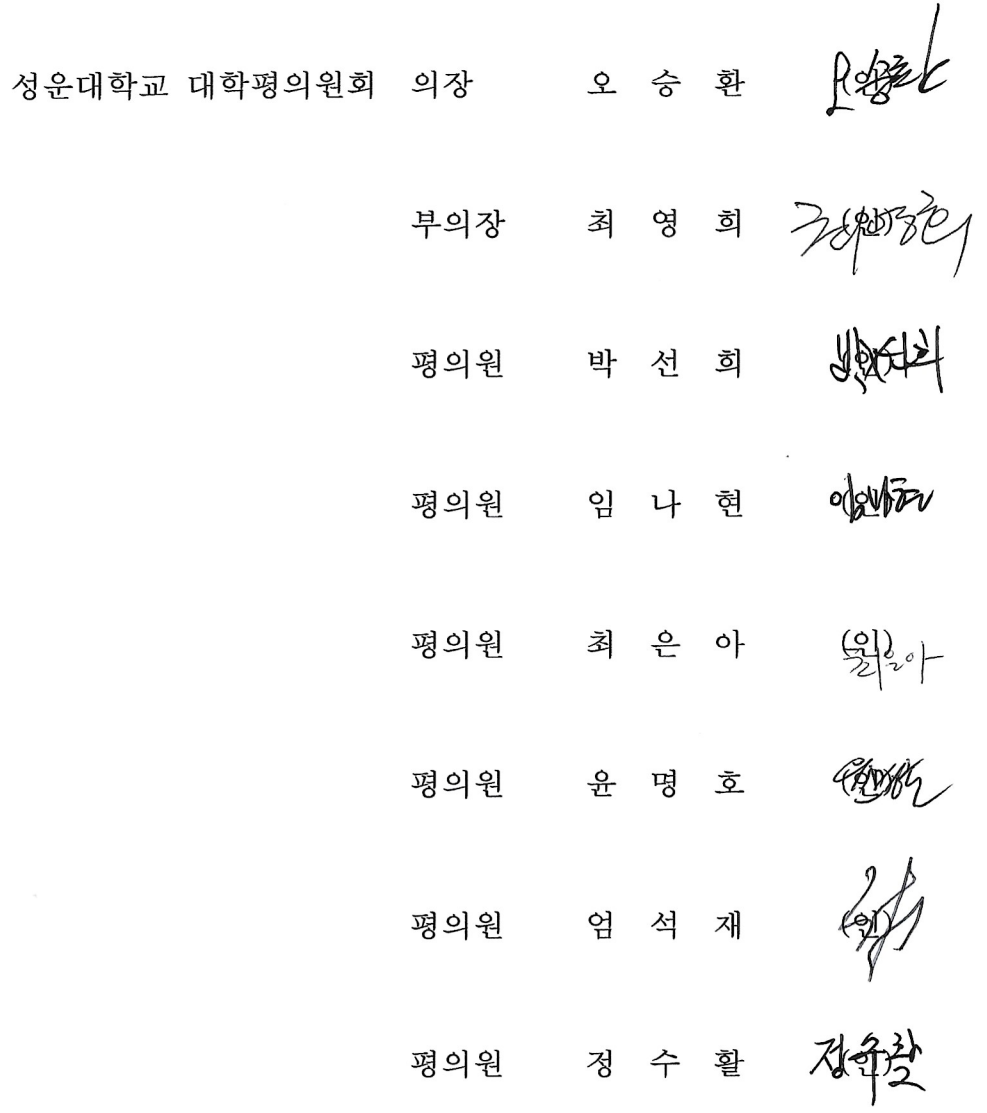 성운대학교 대학평의원회 의장 오 승 환 (인)
부의장 최 영 희 (인)
평의원 박 선 희 (인)
평의원 임 나 현 (인)
평의원 최 은 아 (인)
평의원 윤 명 호 (인)
평의원 엄 석 재 (인)
평의원 정 수 활 (인)